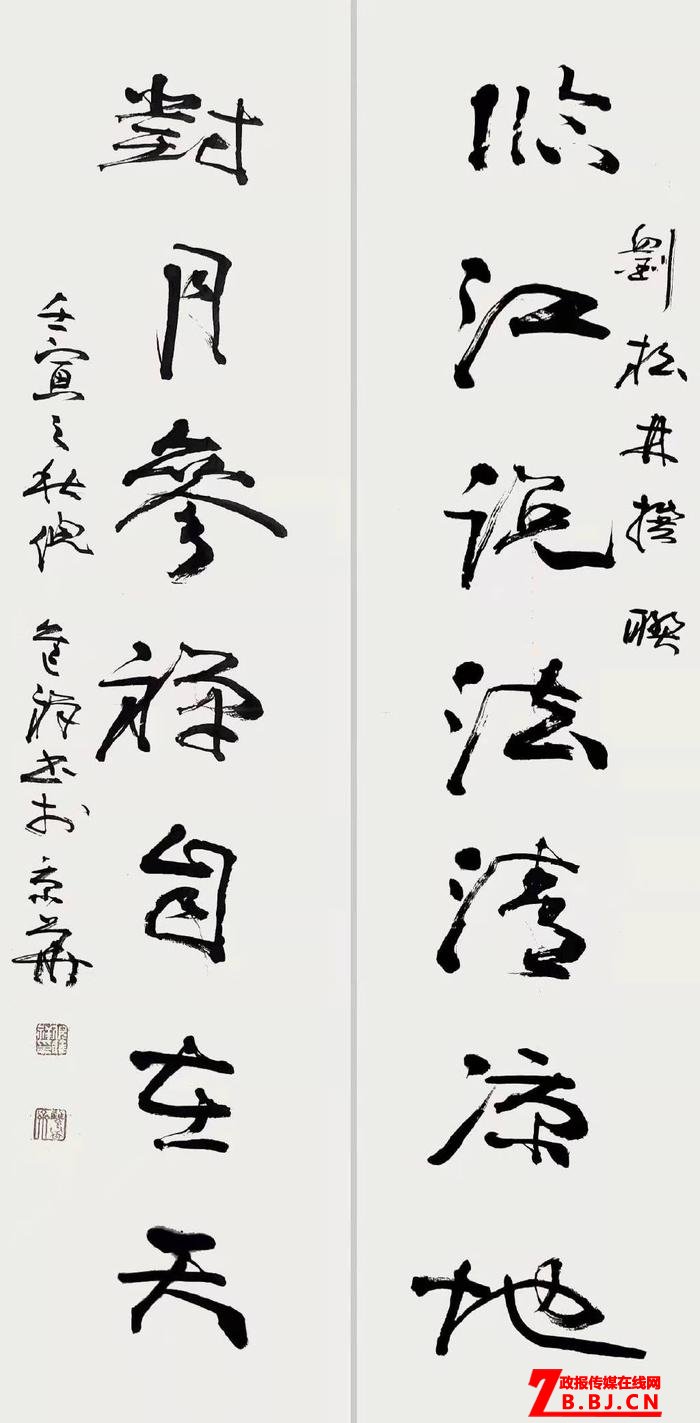 劉松撰聯
臨江說法清凉地
對月參禪自在天
壬寅之秋倪進祥書於京華
政报传媒在线网
ZB.BJ.CN